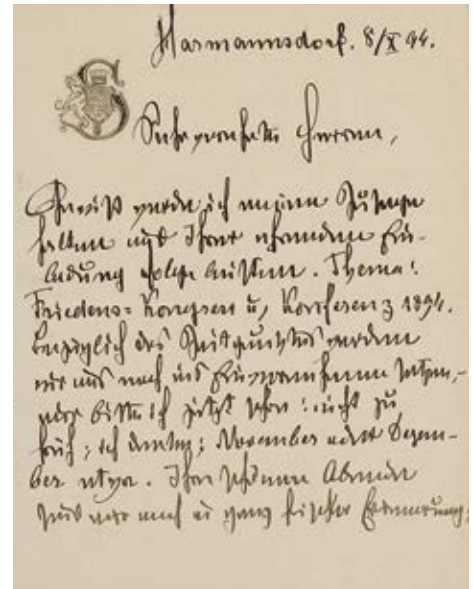 Harmannsdorf. 8/X 94.
S
Sehr geehrte Herren,
Gewiß werde ich meine Zusage
halten und Ihrer ehrenden Ein-
ladung Folge leisten. Thema:
Friedens-Kongress u. Konferenz 1894.
Bezüglich des Zeitpunktes werden
wir uns noch ins Einvernehmen setzen,
nur bitte ich jetzt schon: nicht zu
früh; ich denke: November oder Dezem-
ber etwa. Ihre schönen Abende
sind mir noch in ganz frischer Erinnerung;